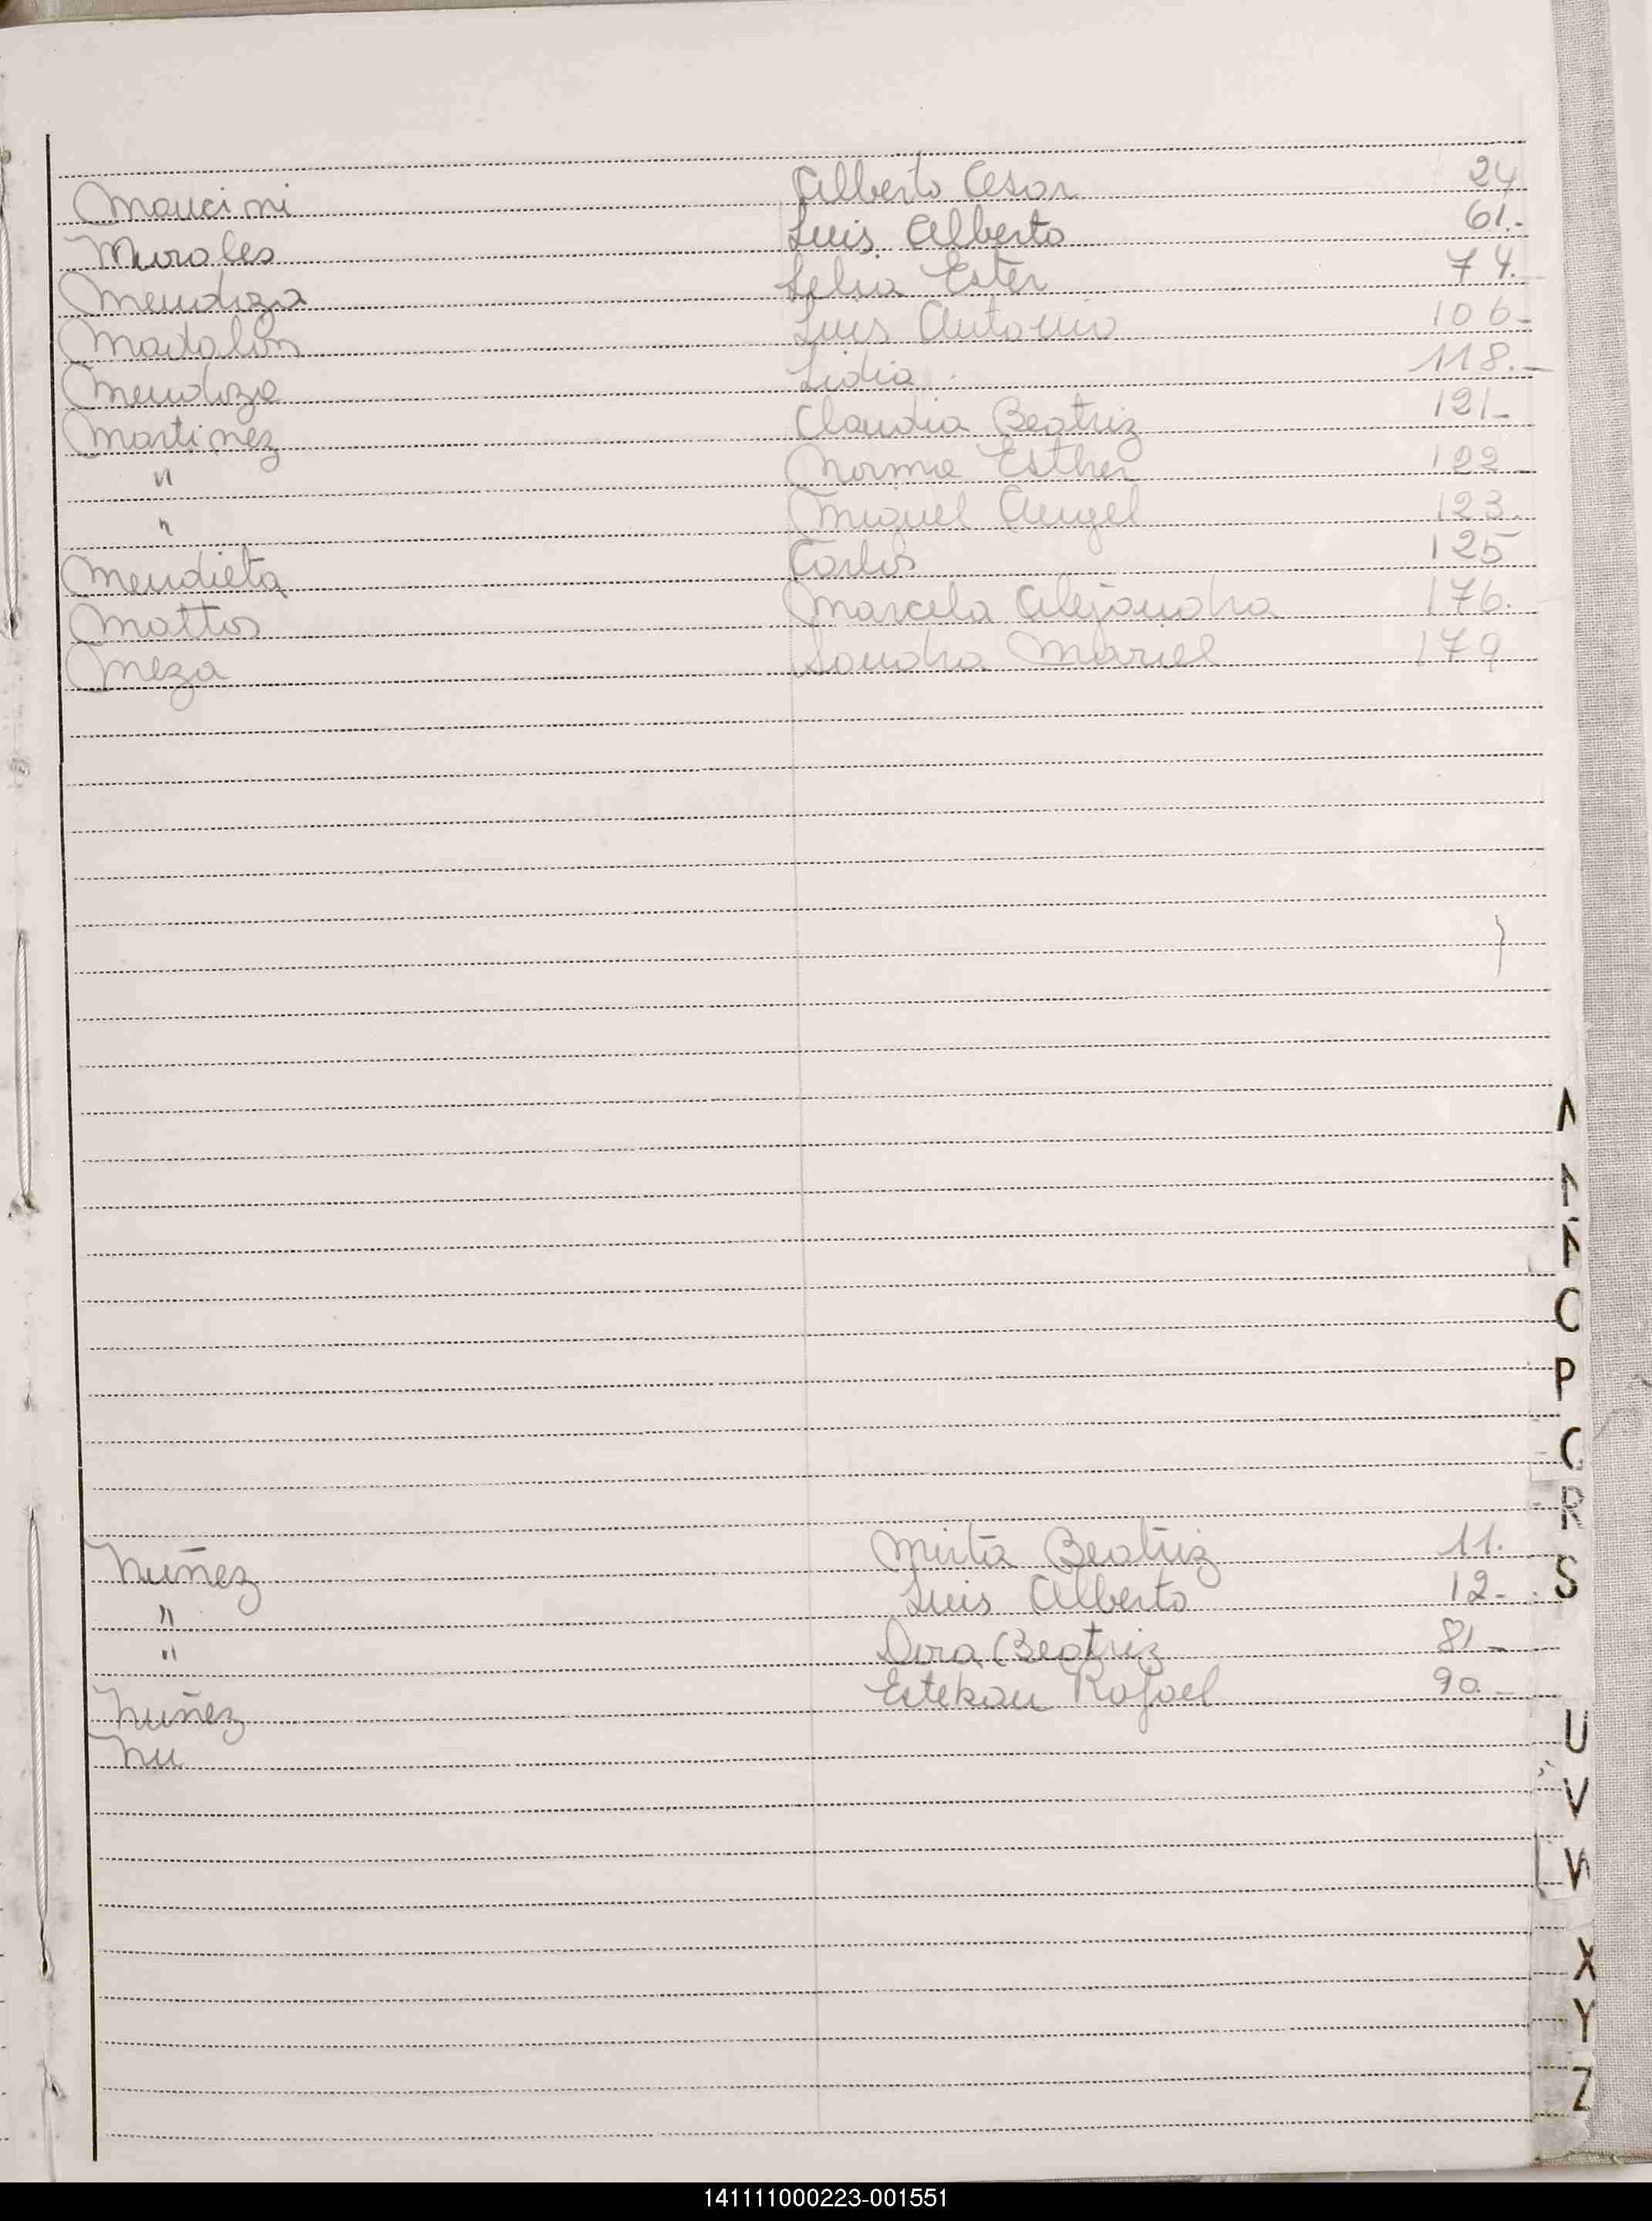 Mancini Alberto Cesar 24
Morales Luis Alberto 61.-
Mendoza Lelia Ester 74.
Madalon Luis Antonio 106-
Mendoza Lidia. 118.-
Martinez Claudia Beatriz 121-
" Norma Esther 122
" Miguel Angel 123.
Mendieta Carlos 125
Mattos Marcela Alejandra 176.
Meza Sandra Mariel 179
Nuñez Mirta Beatriz 11.
" Luis Alberto 12-
" Dora Beatriz 81-
Nuñez Esteban Rafael 90.-
Nu
C
P
R
S
U
V
X
Y
Z
141111000223-001551